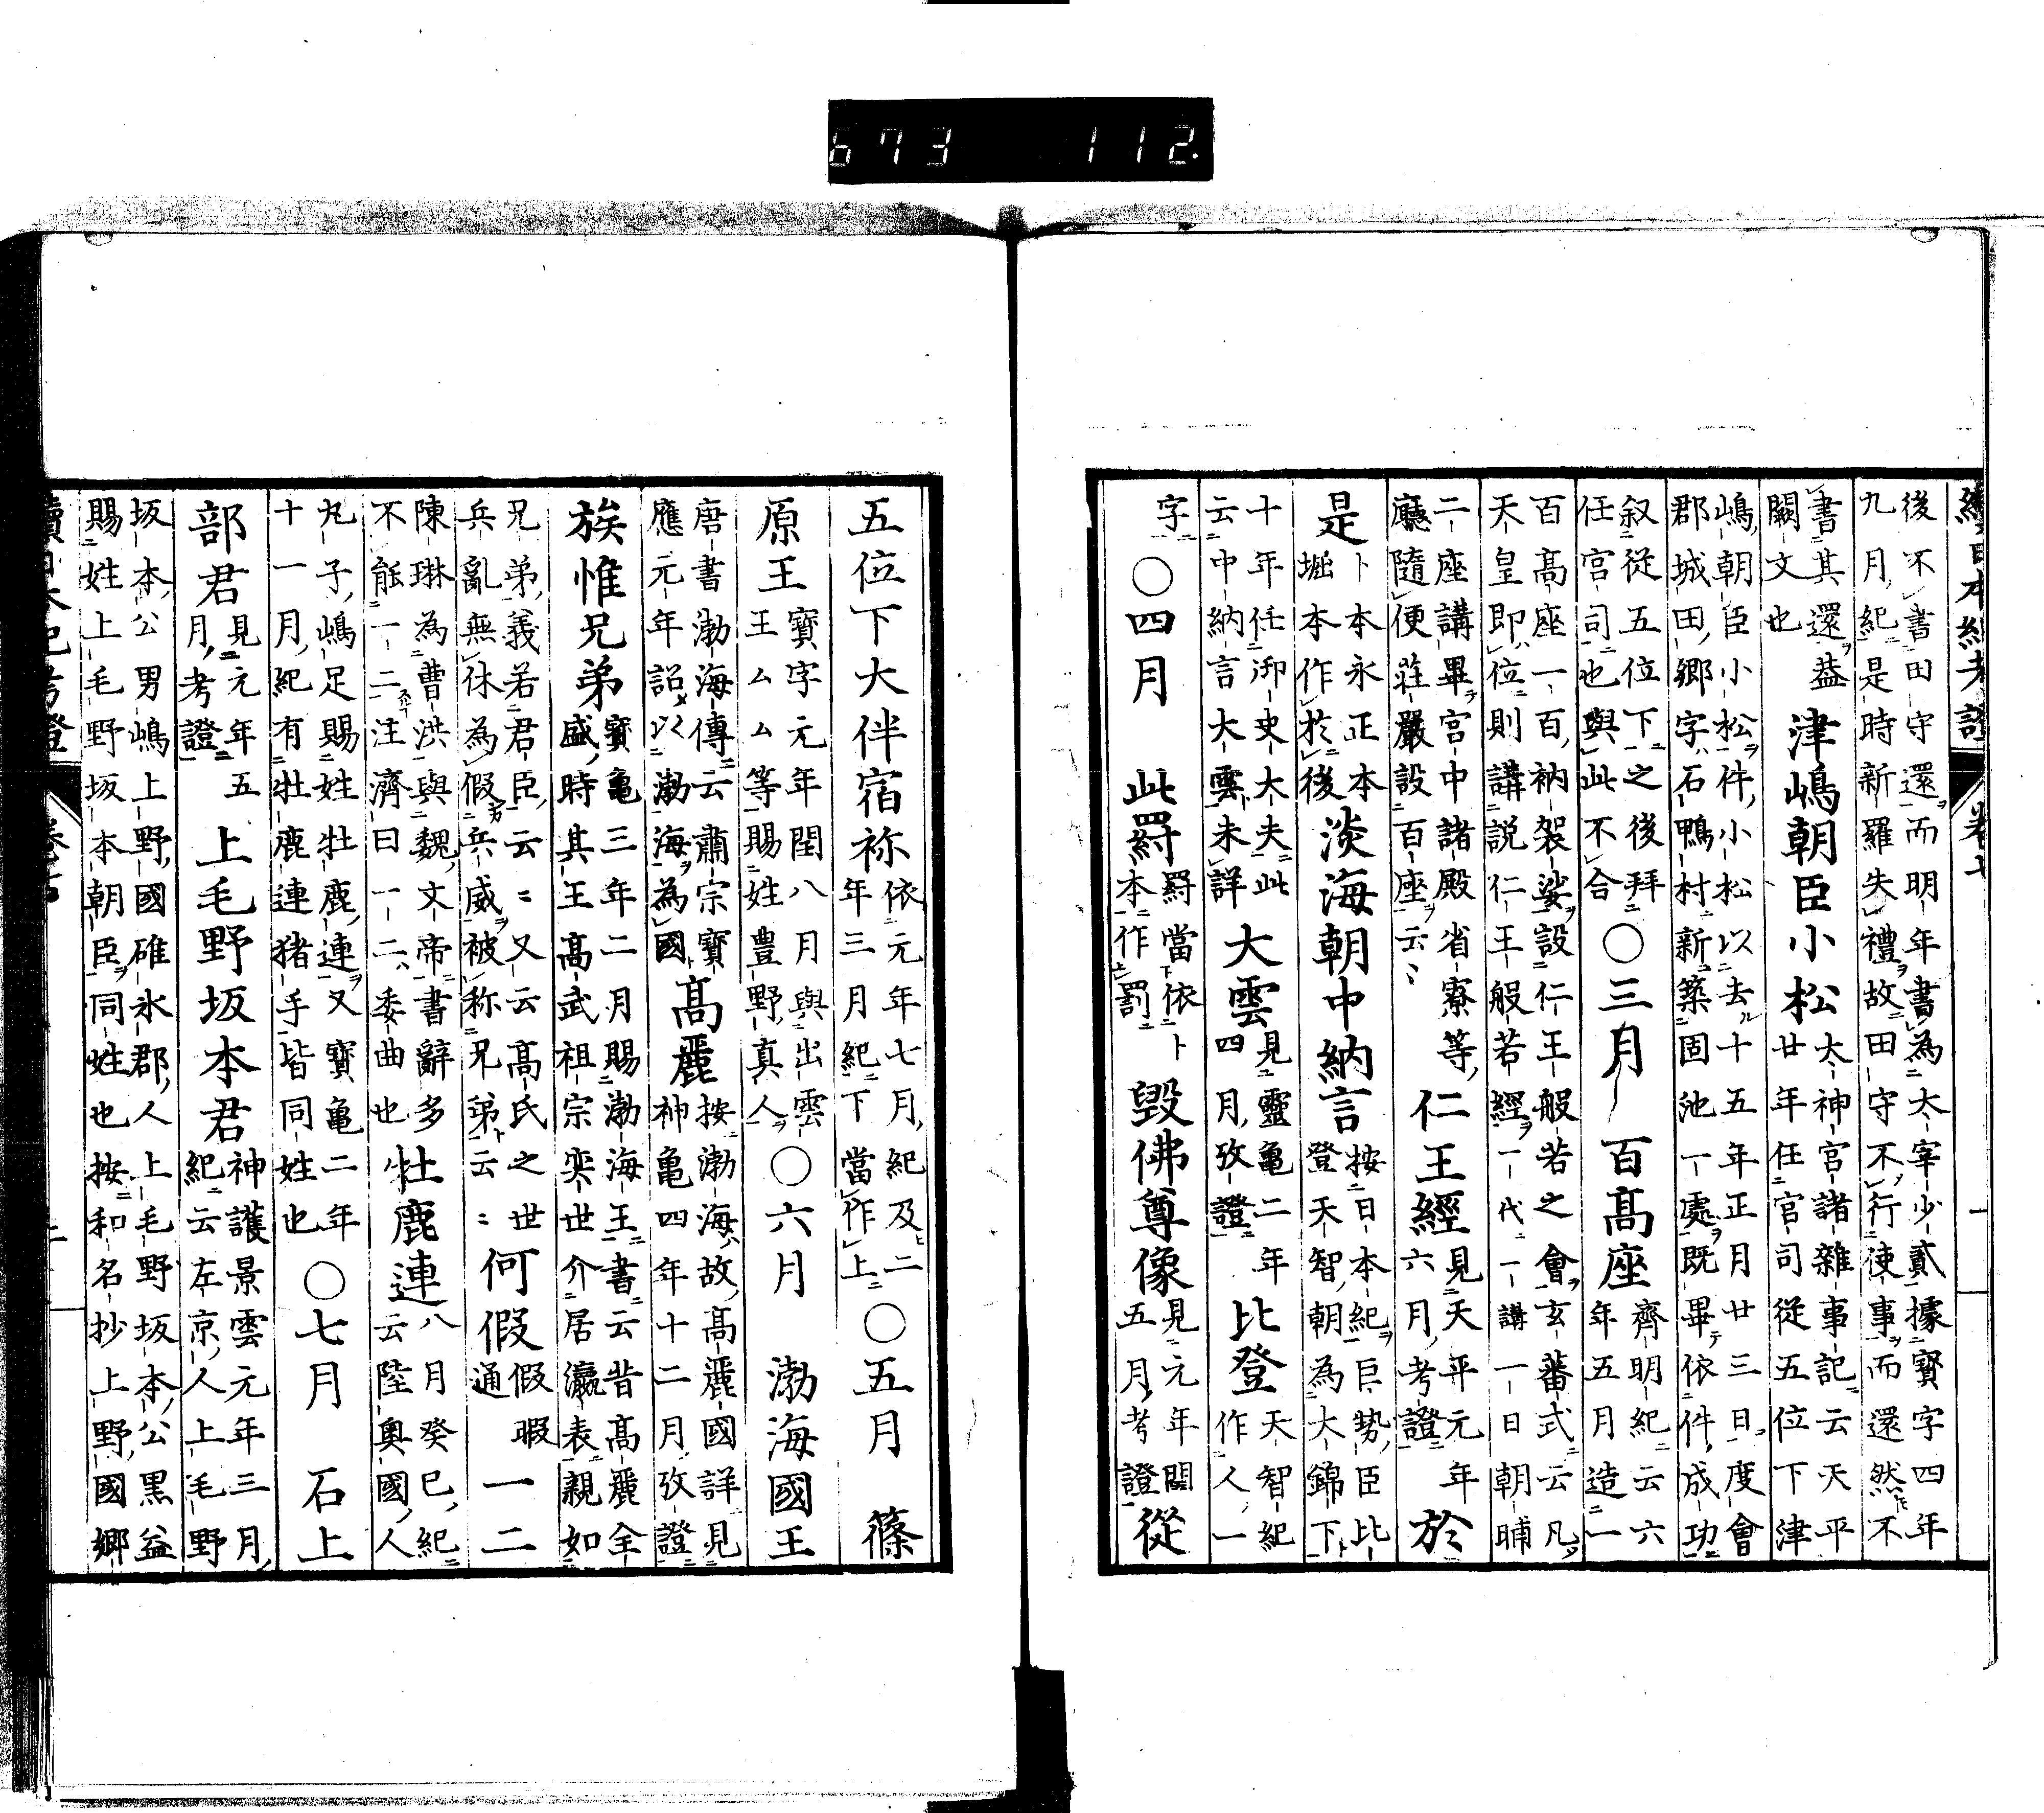 673 112.
後不書田守還而明年書為大宰少貳據寳字四年
九月紀是時新羅失禮故田守不行使事而還然不
書其還葢
闕文也
津嶋朝臣小松
大神宮諸雜事記云天平
廿年任官司從五位下津
嶋朝臣小松件小松以去十五年正月廿三日度會
郡城田鄉字石鴨村新築固池一處既畢依件成功
叙從五位下之後拜
任宮司也與此不合
〇三月
百髙座
齊明紀云六
年五月造一
百髙座一百衲袈娑設仁王般若之會玄蕃式云凡
天皇即位則講説仁王般若經一代一講一日朝晡
二座講畢宮中諸殿省寮等
廳隨便莊嚴設百座云〻
仁王經
見天平元年
六月考證
於
是
卜本永正本
堀本作於後
淡海朝中納言
按日本紀巨勢臣比
登天智朝為大錦下
十年任御史大夫此
云中納言大雲未詳
大雲
見靈亀二年
四月攷證
比登
天智紀
作人一
字
〇四月
此罸
罸當依卜
本作罰
毀佛尊像
見元年閏
五月考證
從
五位下大伴宿祢
依元年七月紀及二
年三月紀下當作上
〇五月
篠
原王
寳字元年閏八月與出雲
王ムム等賜姓豊野真人
〇六月
渤海國王
唐書渤海傳云肅宗寳
應元年詔以渤海為國
髙麗
按渤海故髙麗國詳見
神亀四年十二月攷證
族惟兄弟
寳亀三年二月賜渤海王書云昔髙麗全
盛時其王髙武祖宗奕世介居瀛表親如
兄弟義若君臣云〻又云髙氏之世
兵亂無休為假兵威被称兄弟云〻
何假
假暇
通
一二
陳琳為曹洪與魏文帝書辭多
不能一二注濟曰一二委曲也
牡鹿連
八月癸巳紀
云陸奥國人
丸子嶋足賜姓牡鹿連又寳亀二年
十一月紀有牡鹿連猪手皆同姓也
〇七月
石上
部君
見元年五
月考證
上毛野坂本君
神護景雲元年三月
紀云左京人上毛野
坂本公男嶋上野國碓氷郡人上毛野坂本公黒益
賜姓上毛野坂本朝臣同姓也按和名抄上野國郷